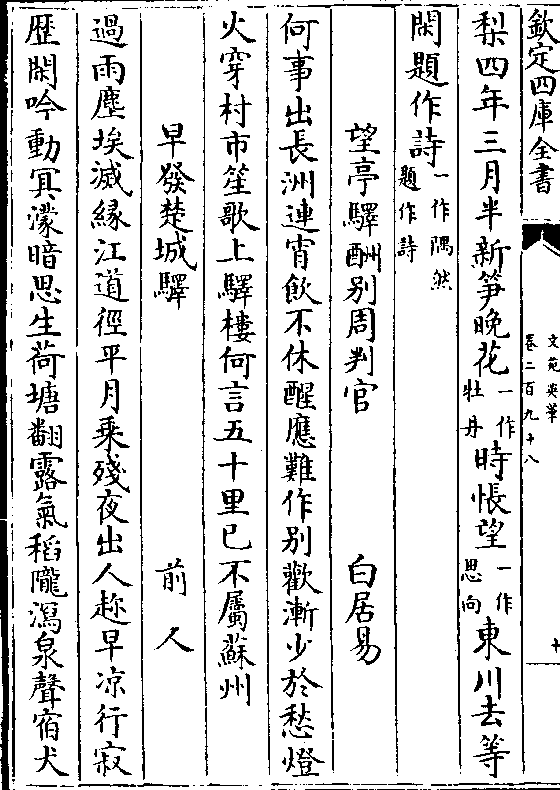 欽定四庫全書
文苑英華
卷二百九十八
十
梨四年三月半新笋晚花一作牡丹時悵望一作思向東川去等
閑題作詩一作隅然題作詩
望亭驛酬别周判官 白居易
何事出長洲連宵飲不休醒應難作别歡漸少於愁燈
火穿村市笙歌上驛樓何言五十里已不屬蘇州
早發楚城驛 前人
過雨塵埃滅緣江道徑平月乗殘夜出人趂早凉行寂
歴閑吟動㝠濛暗思生荷塘翻露氣稻隴瀉泉聲宿犬